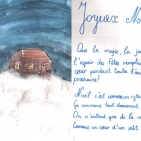 Joyeux No
Que la magie, la jo
l'espoir des fêtes remplis
cœur pendant toute l'ann
prochaine!
Noël c'est comme un ryth
Ça commence tout doucement
On n'entend que de la
Comme un cœur d'un petit